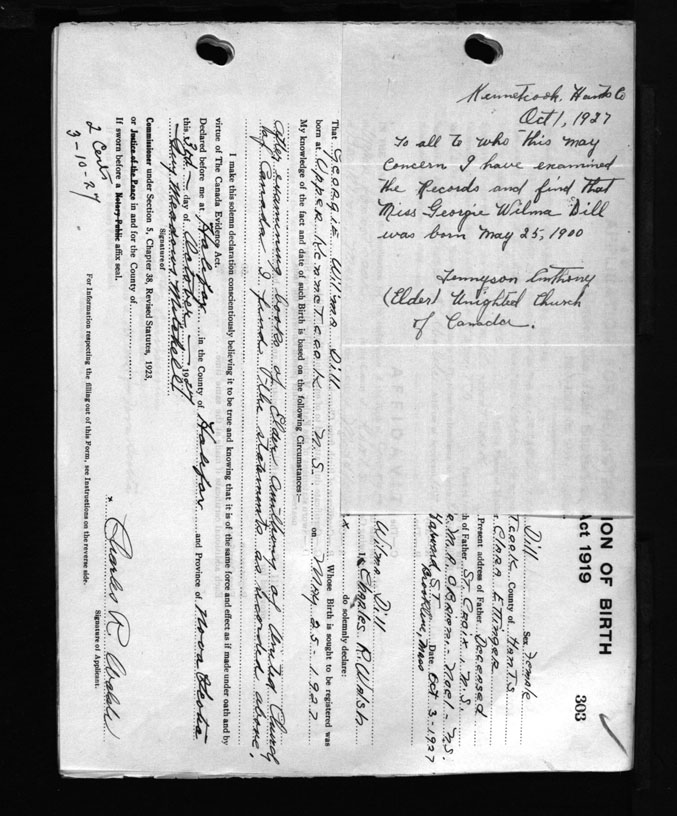 Kennetcook. Hants Co
Oct 1, 1927
To all to who this may
concern I have examined
the Records and find that
Miss Georgie Wilma Dill
was born May 25, 1900
Tennyson Anthony
(Elder) Unighted Church
of Canada.
ION OF BIRTH
Act 1919
303
Dill Sex Female
tcook County of Hants
Clara Ettinger
Present address of Father Deceased
h of Father St. Croix. N.S.
M.A. O'Brien - Noel - N.S.
Harvard St Date Oct 3-1927
Brookline, Mass
Wilma Dill
I, Charles R. Walsh
do solemnly declare:
That Georgie Wilma Dill Whose Birth is sought to be registered was
born at Upper Kennetcook N.S. on May 25-1927
My knowledge of the fact and date of such Birth is based on the following Circumstances:—
After examining books of Elder Anthony of United Church
of Canada I find the statements as recorded above,
I make this solemn declaration conscientiously believing it to be true and knowing that it is of the same force and effect as if made under oath and by
virtue of The Canada Evidence Act.
Declared before me at Halifax in the County of Halifax and Province of Nova Scotia
this 3rd day of October 1927
Signature of
Guy Meadows Mitchell
Commissioner under Section 5, Chapter 38, Revised Statutes, 1923,
or Justice of the Peace in and for the County of
If sworn before a Notary Public affix seal.
x Charles R. Walsh
Signature of Applicant.
2 Certs
3-10-27
For Information respecting the filling out of this Form, see Instructions on the reverse side.